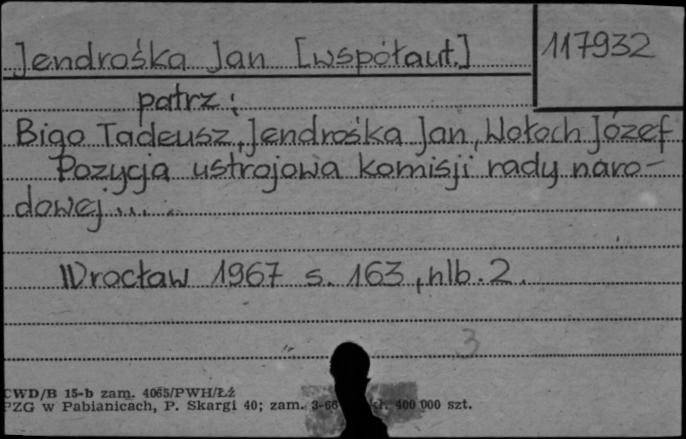 Jendrośka Jan [współaut.]
117932
patrz:
Bigo Tadeusz, Jendrośka Jan, Wołoch Józef
Pozycja ustrojowa komisji rady naro-
dowej...
Wrocław 1967 s. 163, nlb. 2.
3
CWD/B 15-b zam. 4065/PWH/Łź
PZG w Pabianicach, P. Skargi 40; zam. 3-66 400 000 szt.